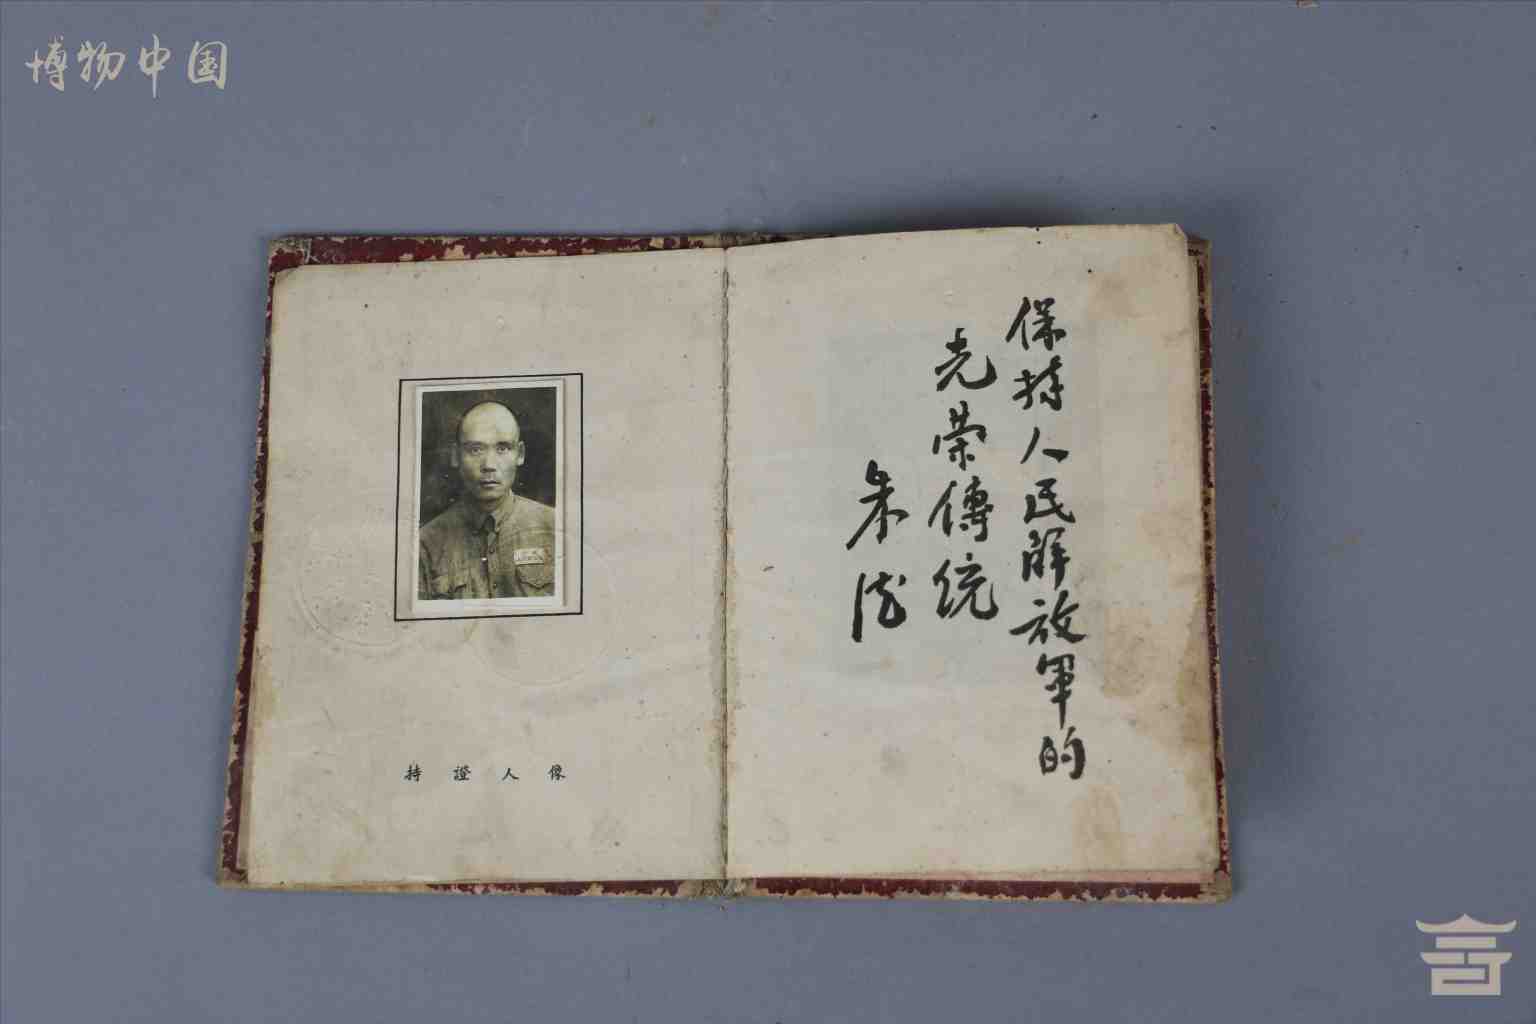 博物中国
保持人民解放軍的
光荣傳统
朱德
持證人像